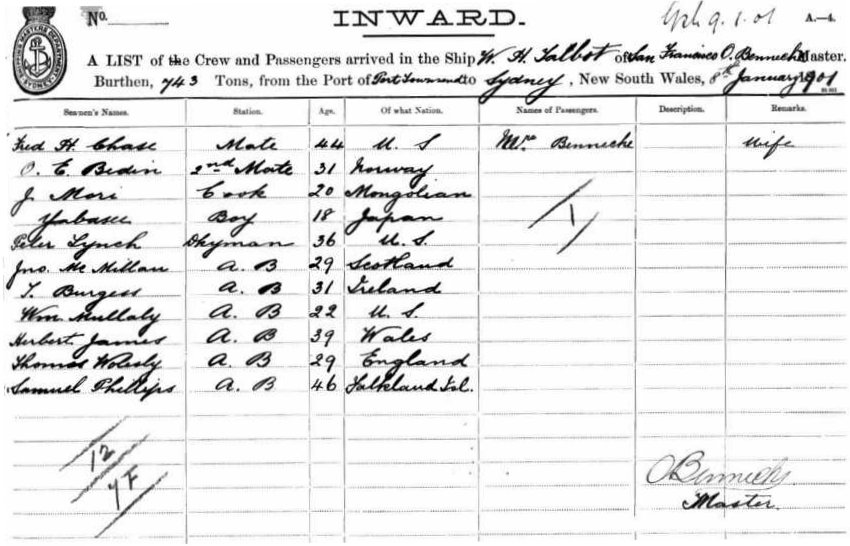 No. INWARD. 9.1.01 A.—4.
SHIPPING MASTERS DEPARTMENT SYDNEY
A LIST of the Crew and Passengers arrived in the Ship W. H. Talbot of San Francisco O. Bennecke Master,
Burthen, 743 Tons, from the Port of Port Townsend to Sydney, New South Wales, 8th January 1901
Seamen's Names. Station. Age. Of what Nation. Names of Passengers. Description. Remarks.
Fred H. Chase Mate 44 U. S Mrs Bennecke Wife
O. E. Bedin 2nd Mate 31 Norway
J. Mori Cook 20 Mongolian
Yabasee Boy 18 Japan
1
Peter Lynch Dkyman 36 U. S.
Jno. Mc Millan A. B 29 Scotland
T. Burgess A. B 31 Ireland
Wm. Mullaly A. B 22 U. S
Herbert James A. B 39 Wales
Thomas Wolesly A. B 29 England
Samuel Phillips A. B 46 Falkland Isl.
12
4 F
O Bennecke
Master